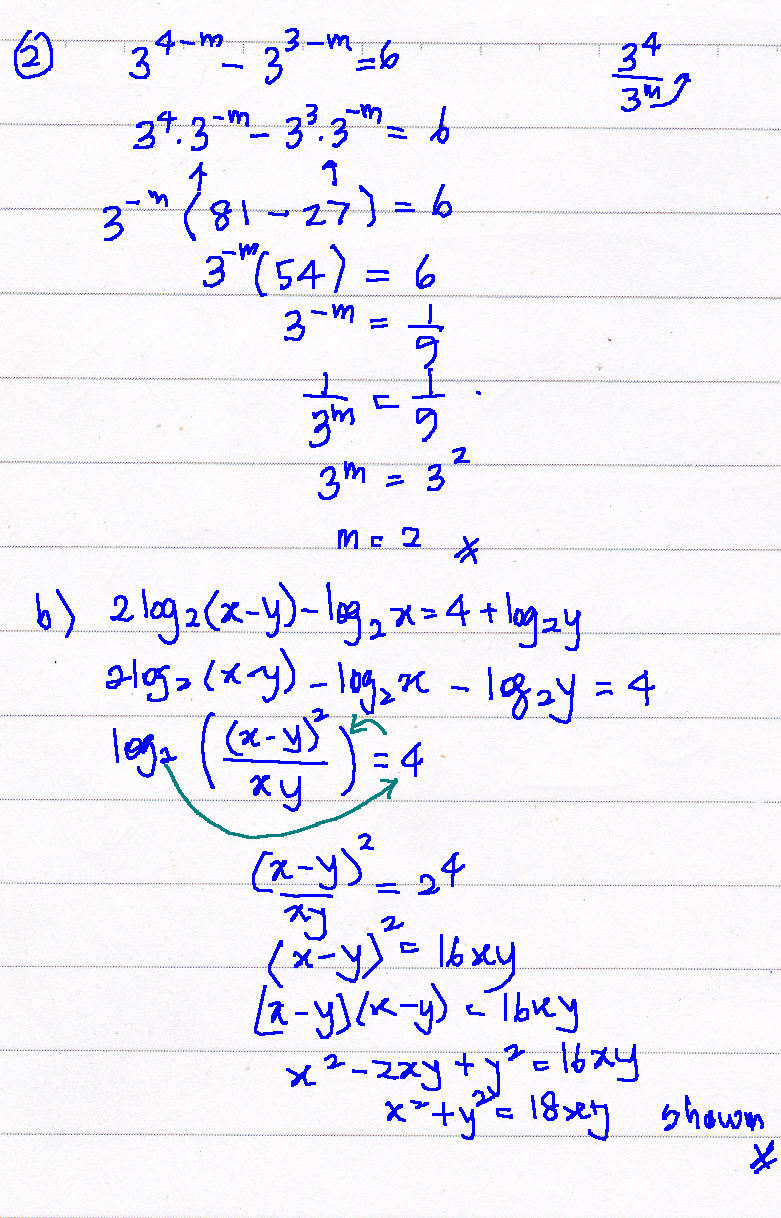 ② 3^{4-m} - 3^{3-m} = 6
3^4/3^m
3^4.3^{-m} - 3^3.3^{-m} = 6
3^{-m} (81 - 27) = 6
3^{-m}(54) = 6
3^{-m} = 1/9
1/3^m = 1/9
3^m = 3^2
m = 2
b) 2log₂(x-y) - log₂x = 4 + log₂y
2log₂(x-y) - log₂x - log₂y = 4
log₂ ((x-y)²/xy) = 4
(x-y)²/xy = 2^4
(x-y)² = 16xy
(x-y)(x-y) = 16xy
x² - 2xy + y² = 16xy
x² + y² = 18xy shown